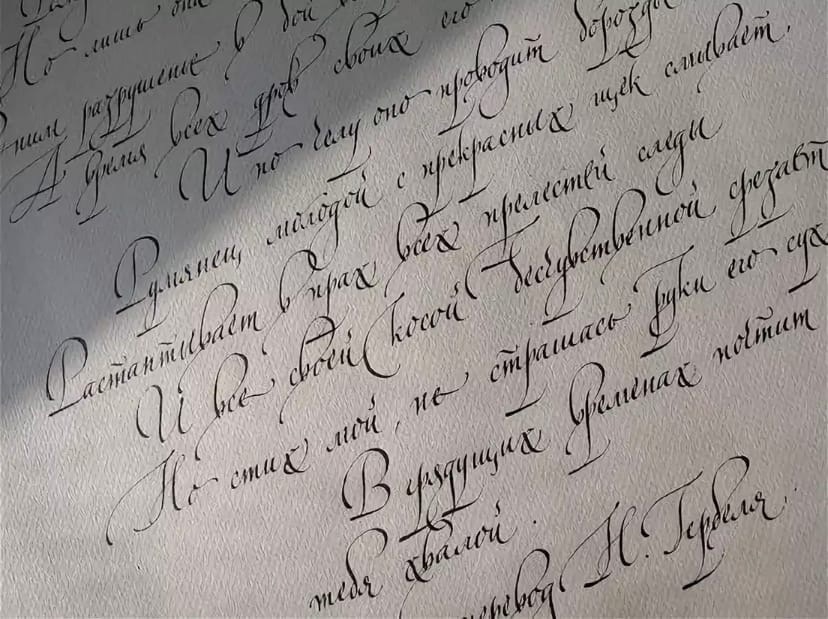 Но лишь
ним разрушенье в бой
А время всех дров своих его
И по челу оно проводит борозды
Румянец молодой с прекрасных щек смывает,
Растаптывает в прах всех прелестей следы
И все своей косой бесчувственной срезает
Но стих мой, не страшась руки его сух
В грядущих временах почтит
тебя хвалой.
перевод Н. Гербеля.